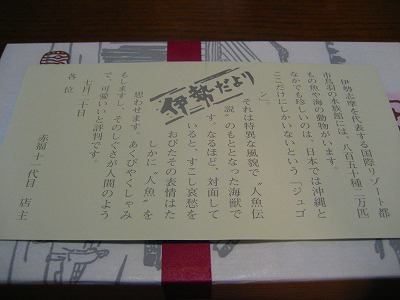 伊勢だより
伊勢志摩を代表する国際リゾート都
市鳥羽の水族館には、八百五十種二万匹
もの魚や海の動物がいます。
なかでも珍しいのは、日本では沖縄と
ここだけにしかいないという「ジュゴ
ン」。
それは特異な風貌で〝人魚伝
説〟のもととなった海獣で
す。なるほど、対面して
いると、すこし哀愁を
おびたその表情はた
しかに〝人魚〟を
思わせます。あくびやくしゃみ
もしますし、そのしぐさが人間のよう
で、可愛いいと評判です。
七月二十日
赤福十一代目 店主
各位